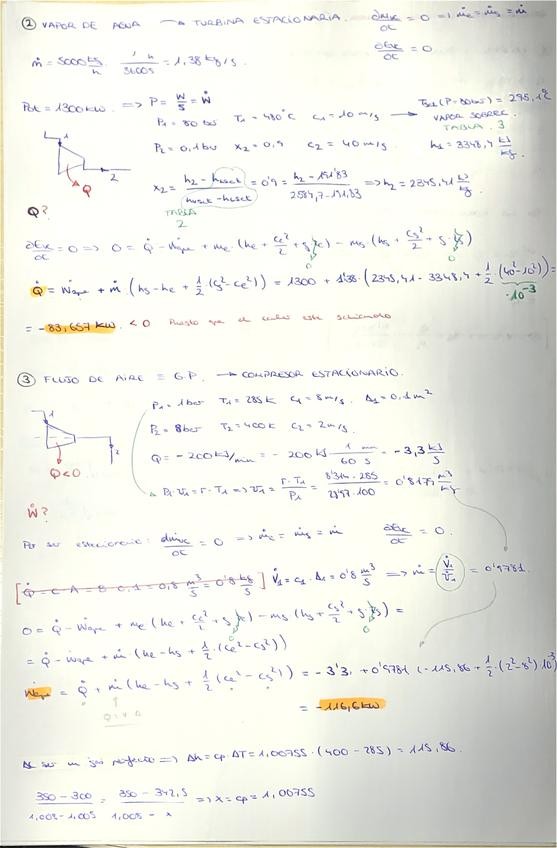 ② VAPOR DE AGUA → TURBINA ESTACIONARIA. dmvc/dt = 0 ⇒ ṁe = ṁs = ṁ
dEvc/dt = 0
ṁ = 5000 kg/h · 1 h/3600 s = 1,38 kg/s.
Pot = 1300 kW ⇒ P = W/s = Ẇ
P1 = 80 bar T1 = 480°C c1 = 10 m/s → Tsat (P=80bar) = 295,1°C
VAPOR SOBREC.
TABLA 3
P2 = 0,1 bar x2 = 0,9 c2 = 40 m/s h1 = 3348,4 kJ/kg
1 2 Q
x2 = = 0'9 = h2 - 191,83 / 2584,7 - 191,83 ⇒ h2 = 2345,41 kJ/kg
TABLA 2
Q?
dEvc/dt = 0 ⇒ 0 = Q̇ - Ẇ + me · (he + ce²/2 + g ze) - ms · (hs + cs²/2 + g zs)
0 0
Q̇ = Ẇ + ṁ · (hs - he + 1/2 (cs² - ce²)) = 1300 + 1'38 · (2345,41 - 3348,4 + 1/2 · (40² - 10²)) =
· 10⁻³
= -83,657 kW. < 0 Puesto que el calor está
③ FLUJO DE AIRE = G.P. → COMPRESOR ESTACIONARIO.
P1 = 1 bar T1 = 285 K c1 = 8 m/s. A1 = 0,1 m²
P2 = 8 bar T2 = 400 K c2 = 2 m/s.
1 2 Q<0
Q = -200 kJ/min = -200 kJ · 1 min / 60 s = -3,3 kJ/s
P1 · v1 = r · T1 ⇒ v1 = r · T1 / P1 = 8'314 · 285 / 28'97 · 100 = 0'8179 m³/kg
Ẇ?
Por ser estacionario: dmvc/dt = 0 → ṁe = ṁs = ṁ dEvc/dt = 0.
V̇1 = c1 · A1 = 0'8 m³/s ⇒ ṁ = V̇1/v1 = 0'9781
0 = Q̇ - Ẇ + me (he + ce²/2 + g ze) - ms (hs + cs²/2 + g zs) =
0 0
= Q̇ - Ẇ + ṁ (he - hs + 1/2 · (ce² - cs²))
Ẇ = Q̇ + ṁ (he - hs + 1/2 (ce² - cs²)) = -3'3 + 0'9781 (-115,86 + 1/2 · (2² - 8²) 10⁻³)
= -116,6 kW
Al ser un gas perfecto ⇒ Δh = cp · ΔT = 1,00755 · (400 - 285) = 115,86.
350 - 300 / 1,008 - 1,005 = 350 - 342,5 / 1,008 - x ⇒ x = cp = 1,00755